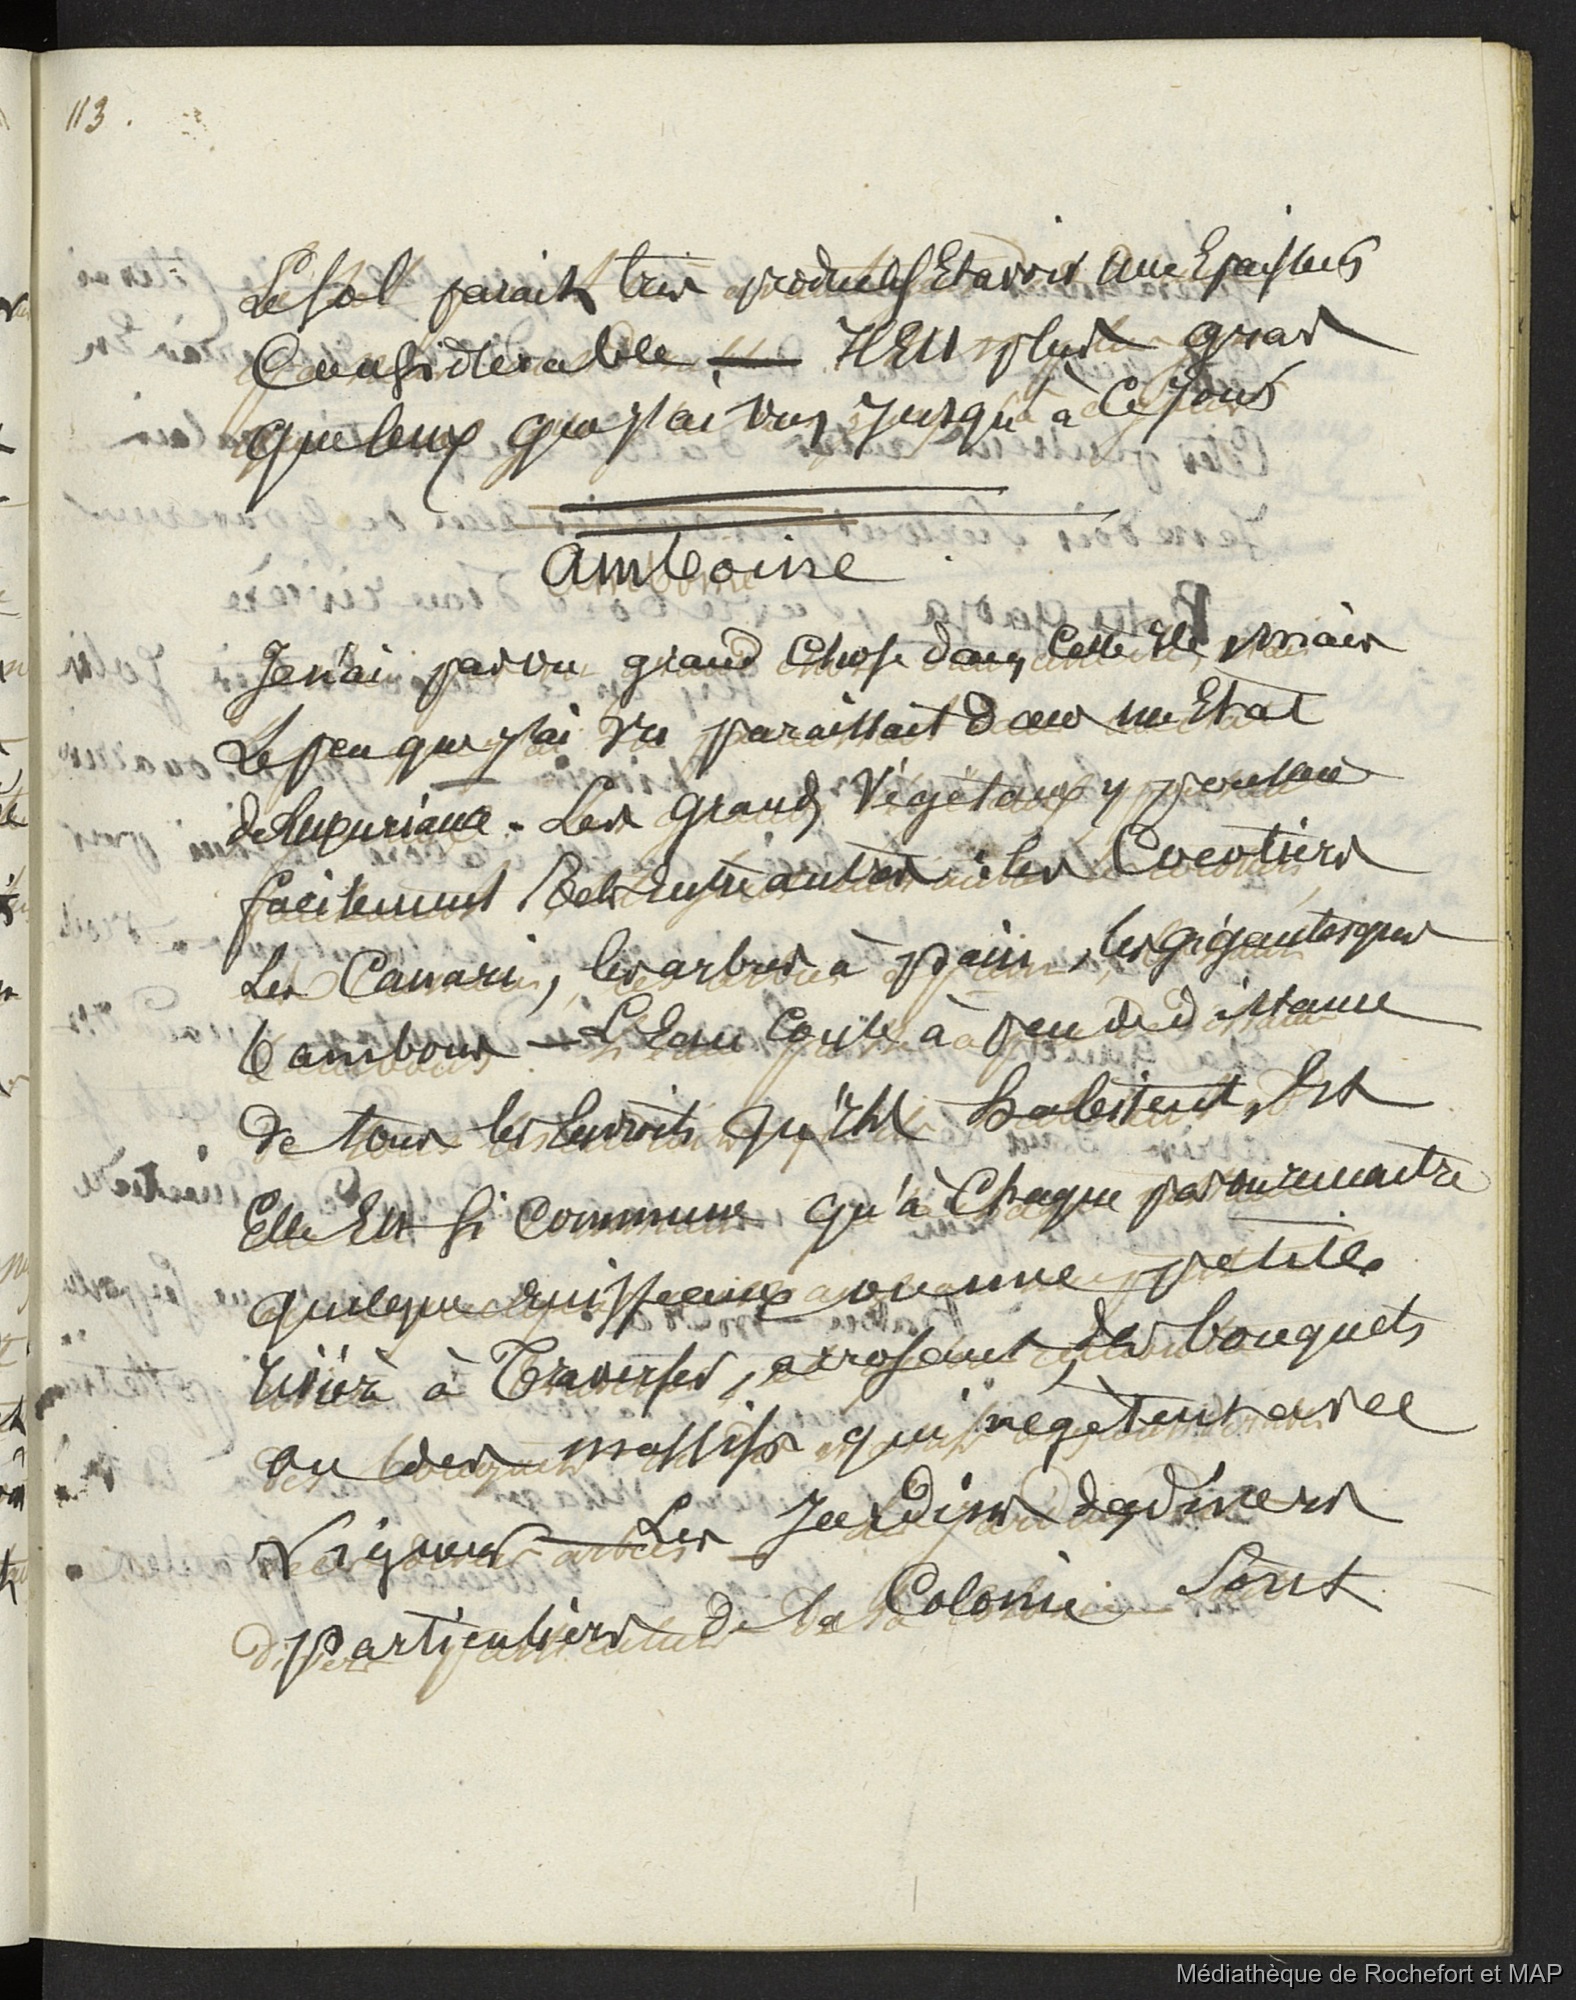 113.
Le sol parait très productif Et avoir Une Epaisseur
Considerable — Il Est plus gras
que ceux que J'ai vus Jusqu'à Ce Jour
Amboine
Je n'ai pas vu grand Chose dans Cette Ile, Mais
Le peu que J'ai Vu paraissait dans un Etat
de luxuriance. Les grands Végétaux y poussent
facilement Entre autres : les Cocotiers
Les Canari, les arbres à pain, les gigantesques
bambous — L'Eau Coule à peu de distance
de tous les Endroits qu'Ils habitent, Et
Elle Est si Commune qu'à Chaque pas on rencontre
quelque ruisseaux ou une petite
rivière à Traverser, arrosant des bouquets
ou des massifs qui végètent avec
Vigueur — Les Jardins des divers
particuliers de la Colonie Sont
Médiathèque de Rochefort et MAP